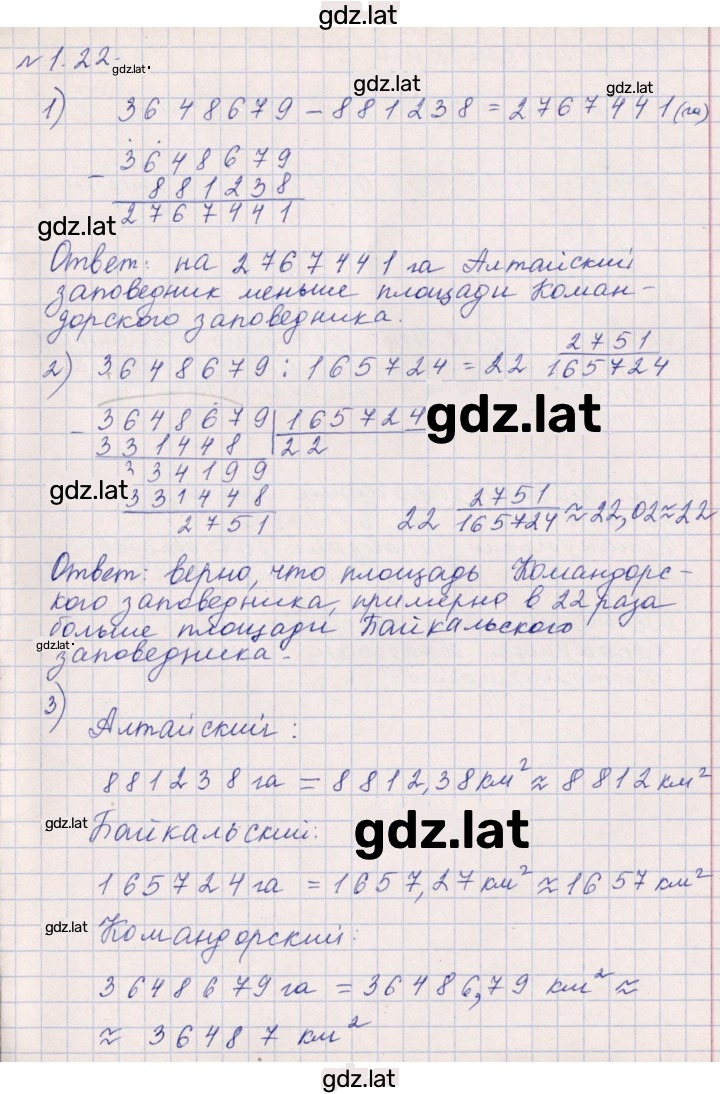 gdz.lat
№ 1.22.
gdz.lat
gdz.lat
1) 3648679 - 881238 = 2767441 (га)
- 3648679
881238
2767441
gdz.lat
Ответ: на 2767441 га Алтайский
заповедник меньше площади Коман-
дорского заповедника.
2) 3648679 : 165724 = 22 2751/165724
- 3648679 | 165724
331448 | 22
gdz.lat
334199
gdz.lat
331448
2751
22 2751/165724 ≈ 22,02 ≈ 22
Ответ: верно, что площадь Командорс-
кого заповедника, примерно в 22 раза
больше площади Байкальского
gdz.lat
заповедника.
3)
Алтайский:
881238 га = 8812,38 км² ≈ 8812 км²
gdz.lat
Байкальский:
gdz.lat
165724 га = 1657,27 км² ≈ 1657 км²
gdz.lat
Командорский:
3648679 га = 36486,79 км² ≈
≈ 36487 км²
gdz.lat